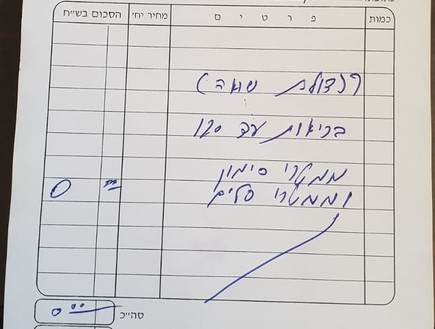 כמות פ ר ט י ם מחיר יח' הסכום בש"ח
(נצולת שואה)
בריאות עד 120
ממקורי סימון
וממטרי סלים 0 =
סה"כ 0